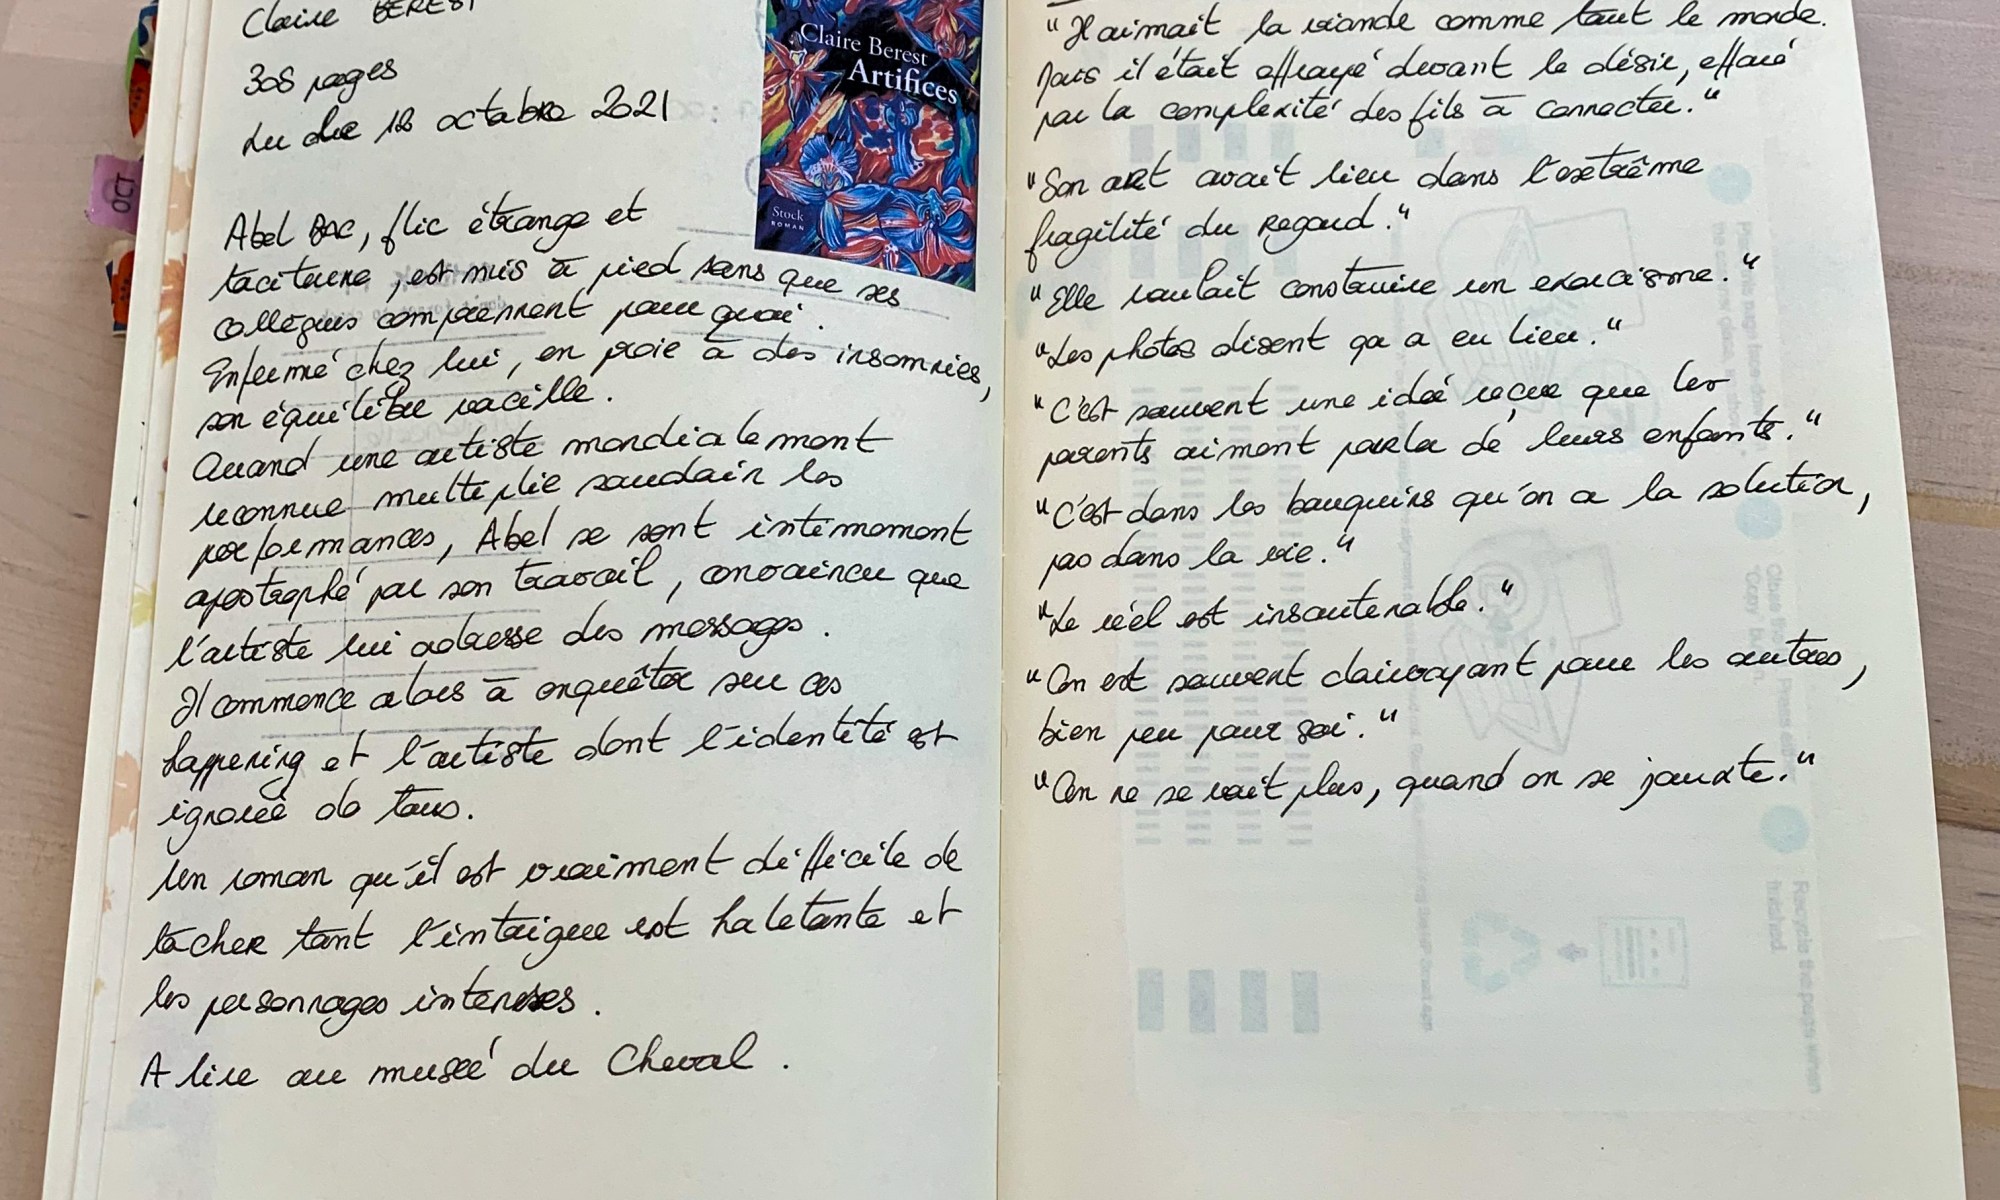 Claire BEREST
308 pages
Lu du 12 octobre 2021
OCT
Claire Berest
Artifices
Stock
ROMAN
Abel Bac, flic étrange et
taciturne, est mis à pied sans que ses
collègues comprennent pour quoi.
Enfermé chez lui, en proie à des insomnies,
son équilibre vacille.
Quand une artiste mondialement
reconnue multiplie soudain les
performances, Abel se sent intimement
apostrophé par son travail, convaincu que
l'artiste lui adresse des messages.
Il commence alors à enquêter sur ces
happening et l'artiste dont l'identité est
ignorée de tous.
Un roman qu'il est vraiment difficile de
lâcher tant l'intrigue est haletante et
les personnages intenses.
A lire au musée du Cheval.
"Il aimait la viande comme tout le monde.
Mais il était effrayé devant le désir, effaré
par la complexité des fils à connecter."
"Son art avait lieu dans l'extrême
fragilité du regard."
"Elle voulait construire un exorcisme."
"Les photos disent ça a eu lieu."
"C'est souvent une idée reçue que les
parents aiment parler de leurs enfants."
"C'est dans les bouquins qu'on a la solution,
pas dans la vie."
"Le réel est insoutenable."
"On est souvent clairvoyant pour les autres,
bien peu pour soi."
"On ne se voit plus, quand on se jouxte."